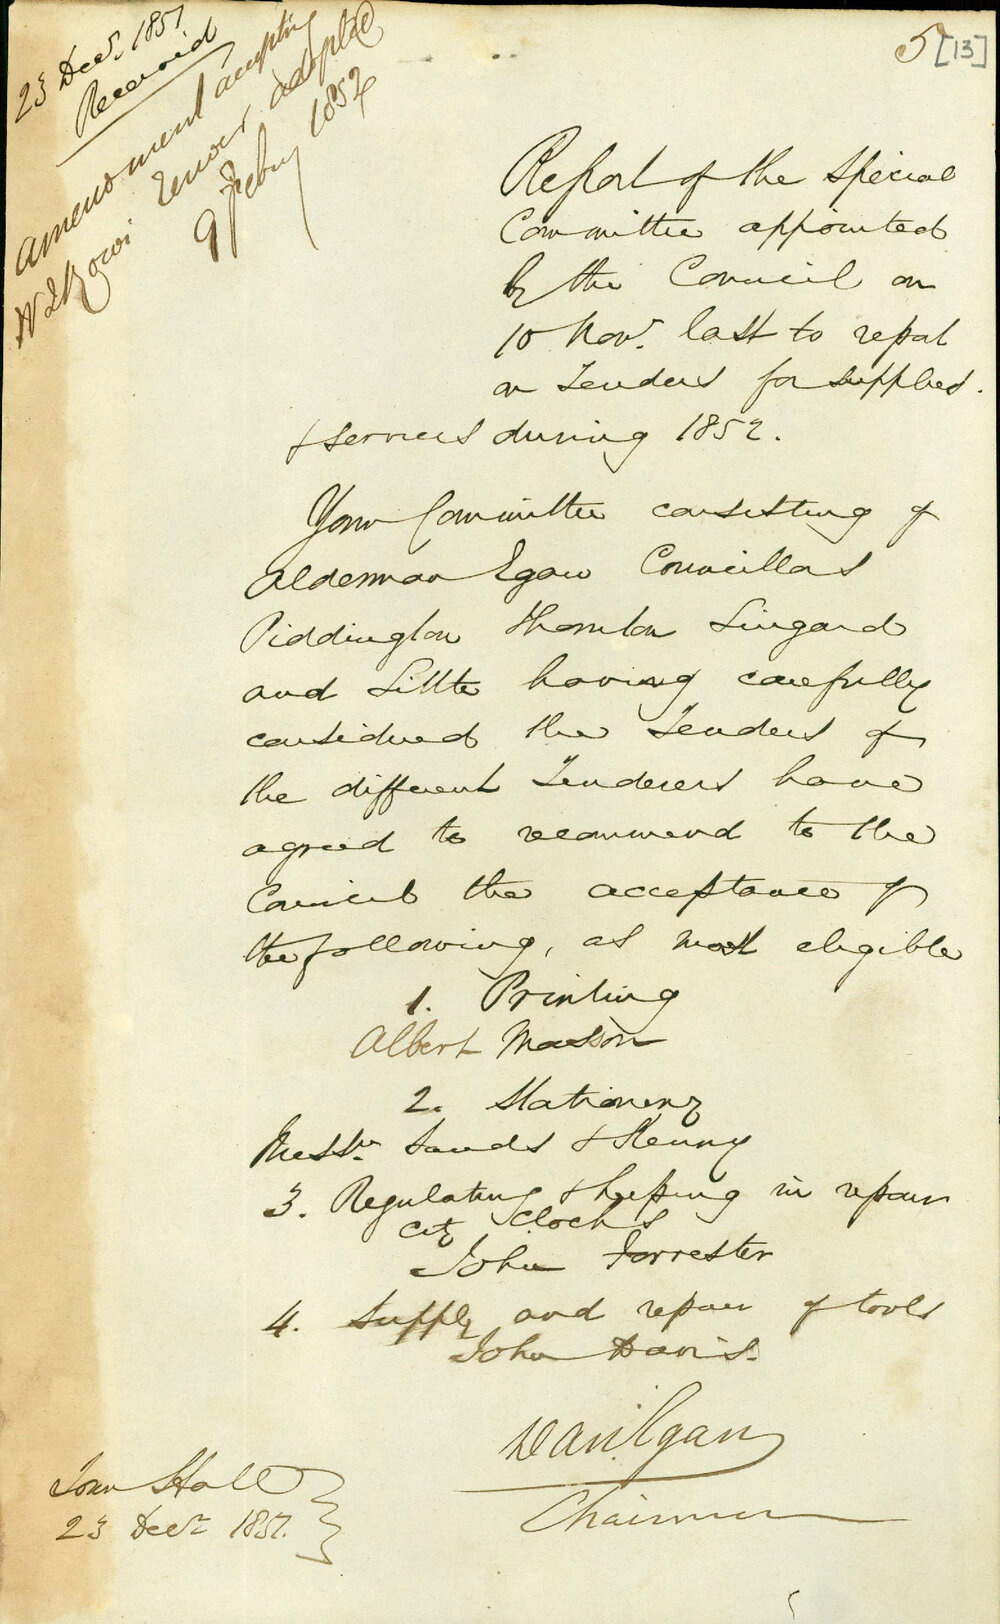 23 Decr. 1851
Received
Amendment accepting
W. Tender adopted
9 Febry 1852
5 [13]
Report of the Special
Committee appointed
by the Council on
10 Novr. last to report
on Tenders for supplies
& services during 1852.
Your Committee consisting of
Alderman Egan Councillors
Piddington Thornton Lingard
and Little having carefully
considered the Tenders of
the different Tenderers have
agreed to recommend to the
Council the acceptance of
the following, as most eligible
1. Printing
Albert Mason
2. Stationery
Messrs. Sands & Kenny
3. Regulating & keeping in repair
City Clocks
John Forrester
4. Supply and repair of tools
John Davis.
Danl Egan
Chairman
Town Hall
23 Decr 1851.